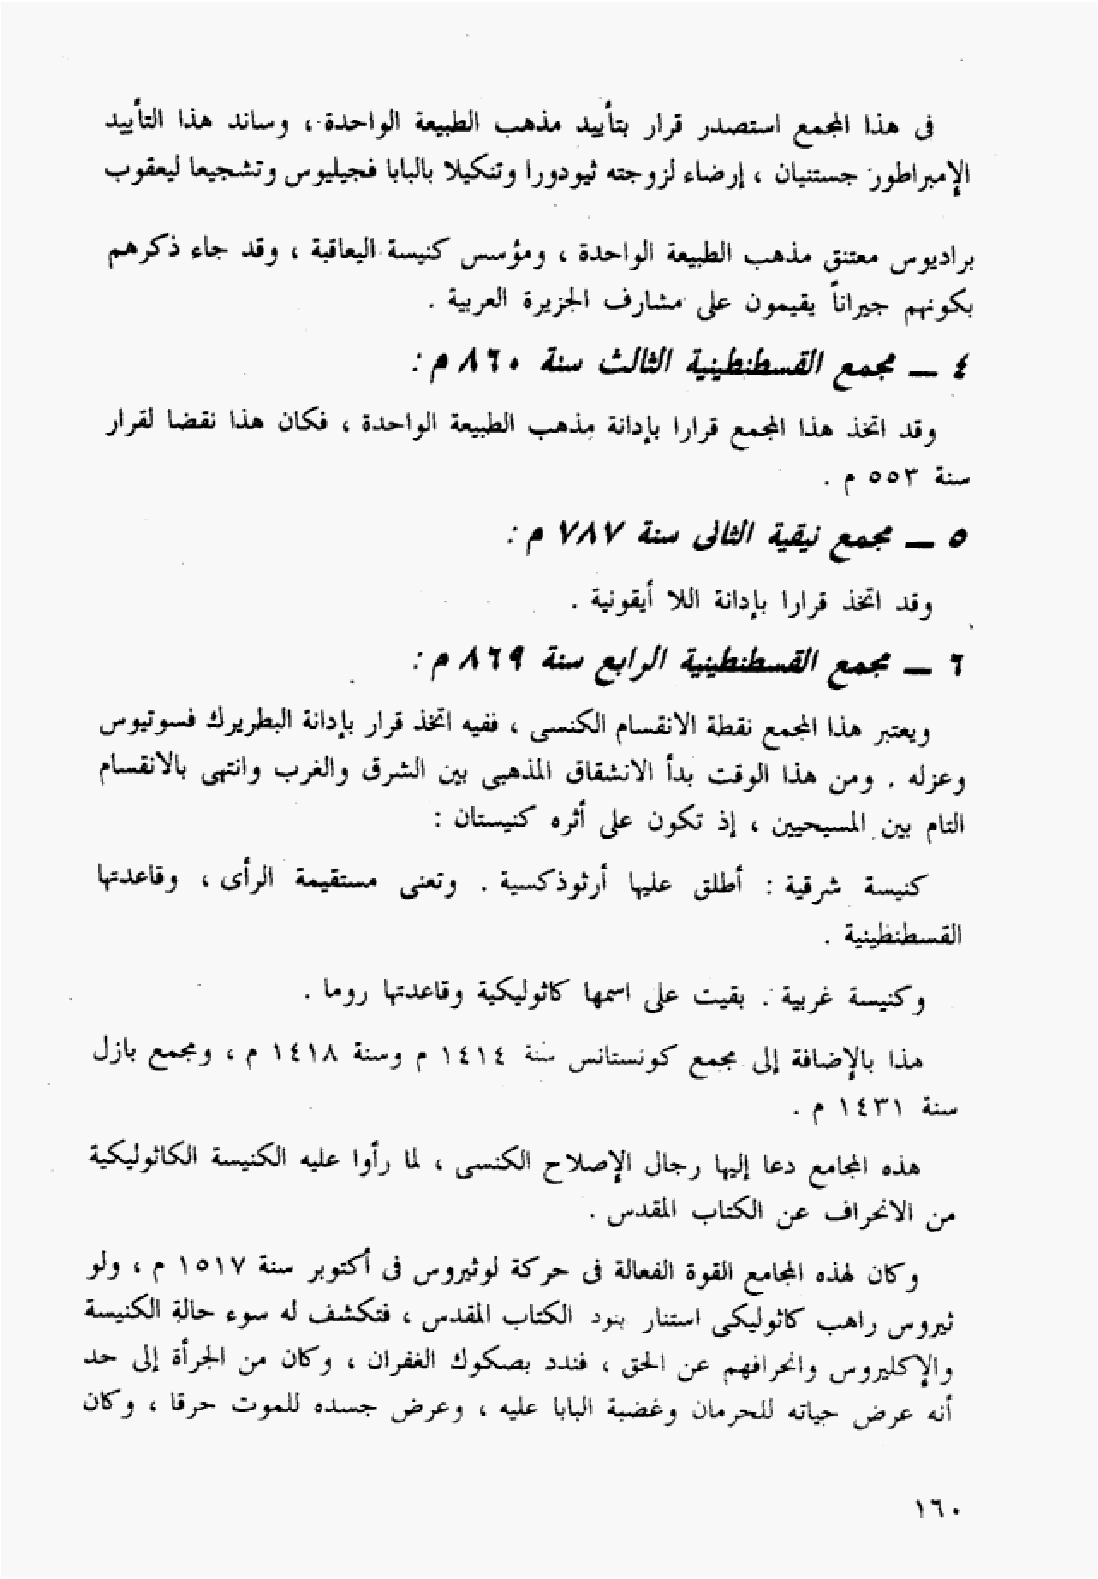 فى هذا المجمع استصدر قرار بتأييد مذهب الطبيعة الواحدة ، وساند هذا التأييد
الإمبراطور جستنيان ، إرضاء لزوجته ثيودورا وتنكيلا بالبابا فجيليوس وتشجيعا ليعقوب
براديوس معتنق مذهب الطبيعة الواحدة ، ومؤسس كنيسة اليعاقبة ، وقد جاء ذكرهم
بكونهم جيراناً يقيمون على مشارف الجزيرة العربية .
٤ ــ مجمع القسطنطينية الثالث سنة ٨٦٠ م :
وقد اتخذ هذا المجمع قرارا بإدانة مذهب الطبيعة الواحدة ، فكان هذا نقضا لقرار
سنة ٥٥٣ م .
٥ ــ مجمع نيقية الثانى سنة ٧٨٧ م :
وقد اتخذ قرارا بإدانة اللا أيقونية .
٦ ــ مجمع القسطنطينية الرابع سنة ٨٦٩ م :
ويعتبر هذا المجمع نقطة الانقسام الكنسى ، ففيه اتخذ قرار بإدانة البطريرك فسوتيوس
وعزله . ومن هذا الوقت بدأ الانشقاق المذهبى بين الشرق والغرب وانتهى بالانقسام
التام بين المسيحيين ، إذ تكون على أثره كنيستان :
كنيسة شرقية : أطلق عليها أرثوذكسية . وتعنى مستقيمة الرأى ، وقاعدتها
القسطنطينية .
وكنيسة غربية . بقيت على اسمها كاثوليكية وقاعدتها روما .
هذا بالإضافة إلى مجمع كونستانس سنة ١٤١٤ م وسنة ١٤١٨ م ، ومجمع بازل
سنة ١٤٣١ م .
هذه المجامع دعا إليها رجال الإصلاح الكنسى ، لما رأوا عليه الكنيسة الكاثوليكية
من الانحراف عن الكتاب المقدس .
وكان لهذه المجامع القوة الفعالة فى حركة لوثيروس فى أكتوبر سنة ١٥١٧ م ، ولو
ثيروس راهب كاثوليكى استنار بنود الكتاب المقدس ، فتكشف له سوء حالة الكنيسة
والإكليروس وانحرافهم عن الحق ، فندد بصكوك الغفران ، وكان من الجرأة إلى حد
أنه عرض حياته للحرمان وغضبة البابا عليه ، وعرض جسده للموت حرقا ، وكان
١٦٠